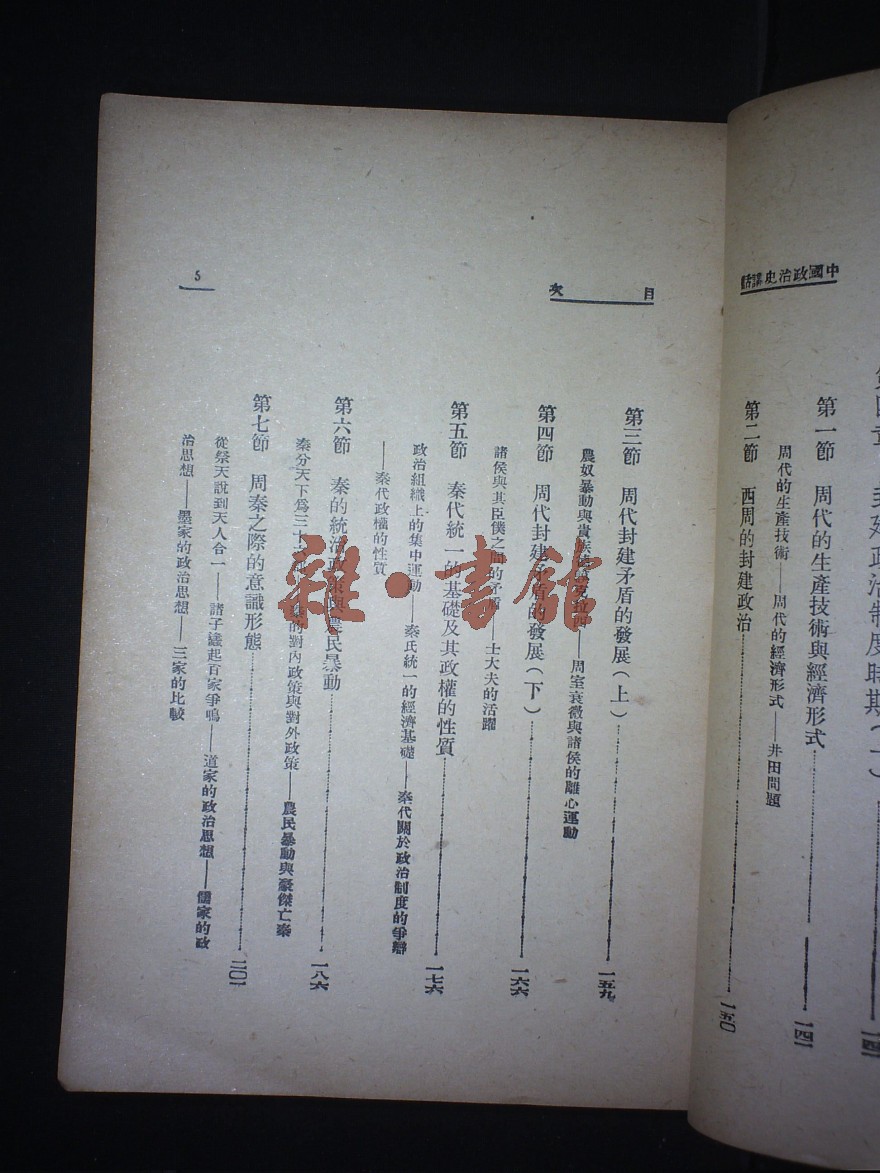 中國政治史講話
封建政治制度時期(一)
第一節 周代的生產技術與經濟形式 一四一
周代的生產技術——周代的經濟形式——井田問題
第二節 西周的封建政治 一五〇
目 次
5
第三節 周代封建矛盾的發展(上) 一五九
農奴暴動與貴族 ——周室衰微與諸侯的離心運動
第四節 周代封建矛盾的發展(下) 一六六
諸侯與其臣僕之間的矛盾——士大夫的活躍
第五節 秦代統一的基礎及其政權的性質 一七六
政治組織上的集中運動——秦氏統一的經濟基礎——秦代關於政治制度的爭辯
——秦代政權的性質
第六節 秦的統治政策與農民暴動 一八六
秦分天下爲三十 秦的對內政策與對外政策——農民暴動與豪傑亡秦
第七節 周秦之際的意識形態 二〇一
從祭天說到天人合一——諸子蠭起百家爭鳴——道家的政治思想——儒家的政
治思想——墨家的政治思想——三家的比較
雜·書館